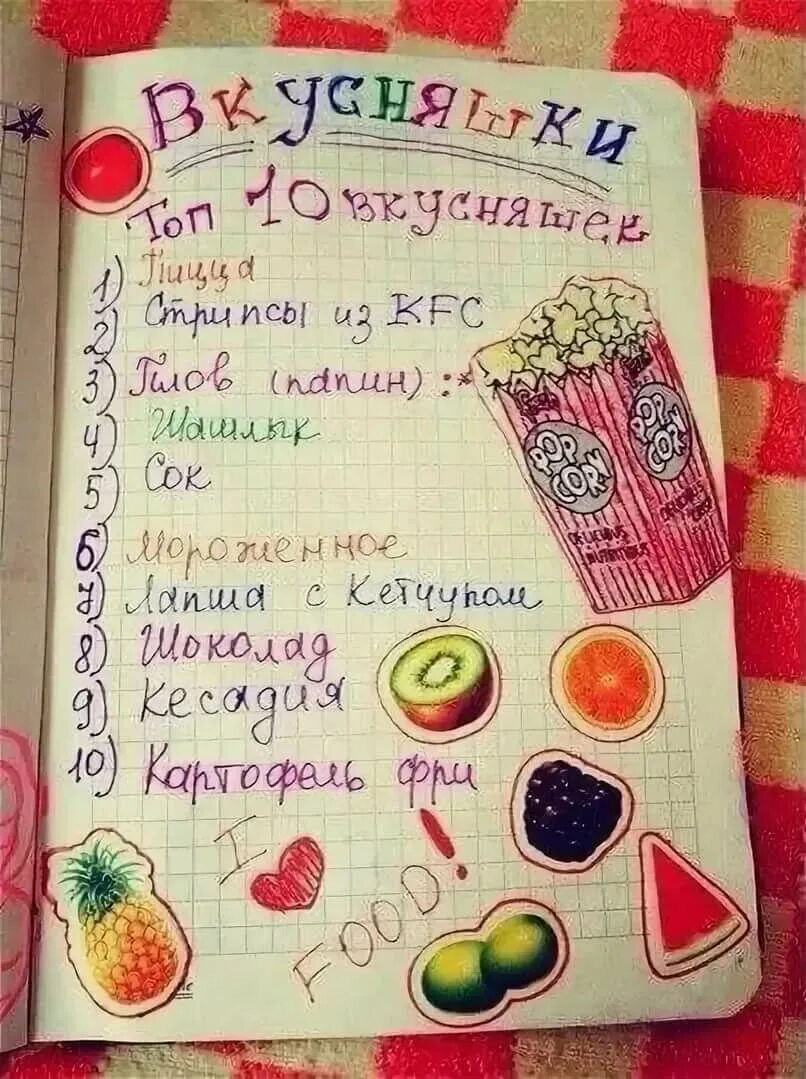 Вкусняшки
Топ 10 вкусняшек
1) Пицца
2) Стрипсы из KFC
3) Плов (папин) :*
4) Шашлык
5) Сок
6) Мороженное
7) Лапша с Кетчупом
8) Шоколад
9) Кесадия
10) Картофель фри
POP CORN
POP CORN
DELICIOUS
I ♥
FOOD!